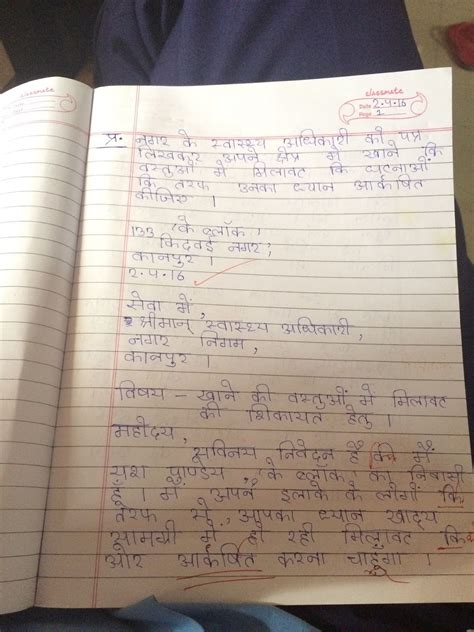 classmate
classmate
Date 2.4.16
Page 1
प्र. नगर के स्वास्थ्य अधिकारी को पत्र
लिखकर अपने क्षेत्र में खाने कि
वस्तुओं में मिलावट कि घटनाओं
कि तरफ उनका ध्यान आर्कषित
कीजिए ।
133 'के ब्लॉक',
किदवई नगर,
कानपुर ।
2.4.16
सेवा में,
श्रीमान् स्वास्थ्य अधिकारी,
नगर निगम,
कानपुर ।
विषय – खाने की वस्तुओं में मिलावट
की शिकायत हेतु ।
महोदय,
सविनय निवेदन है की मैं
यश पाण्डेय, 'के ब्लॉक' का निवासी
हूँ । मैं अपने इलाके के लोगों कि
तरफ से, आपका ध्यान खाद्य
सामग्री में हो रही मिलावट कि
ओर आर्कषित करना चाहूँगा ।